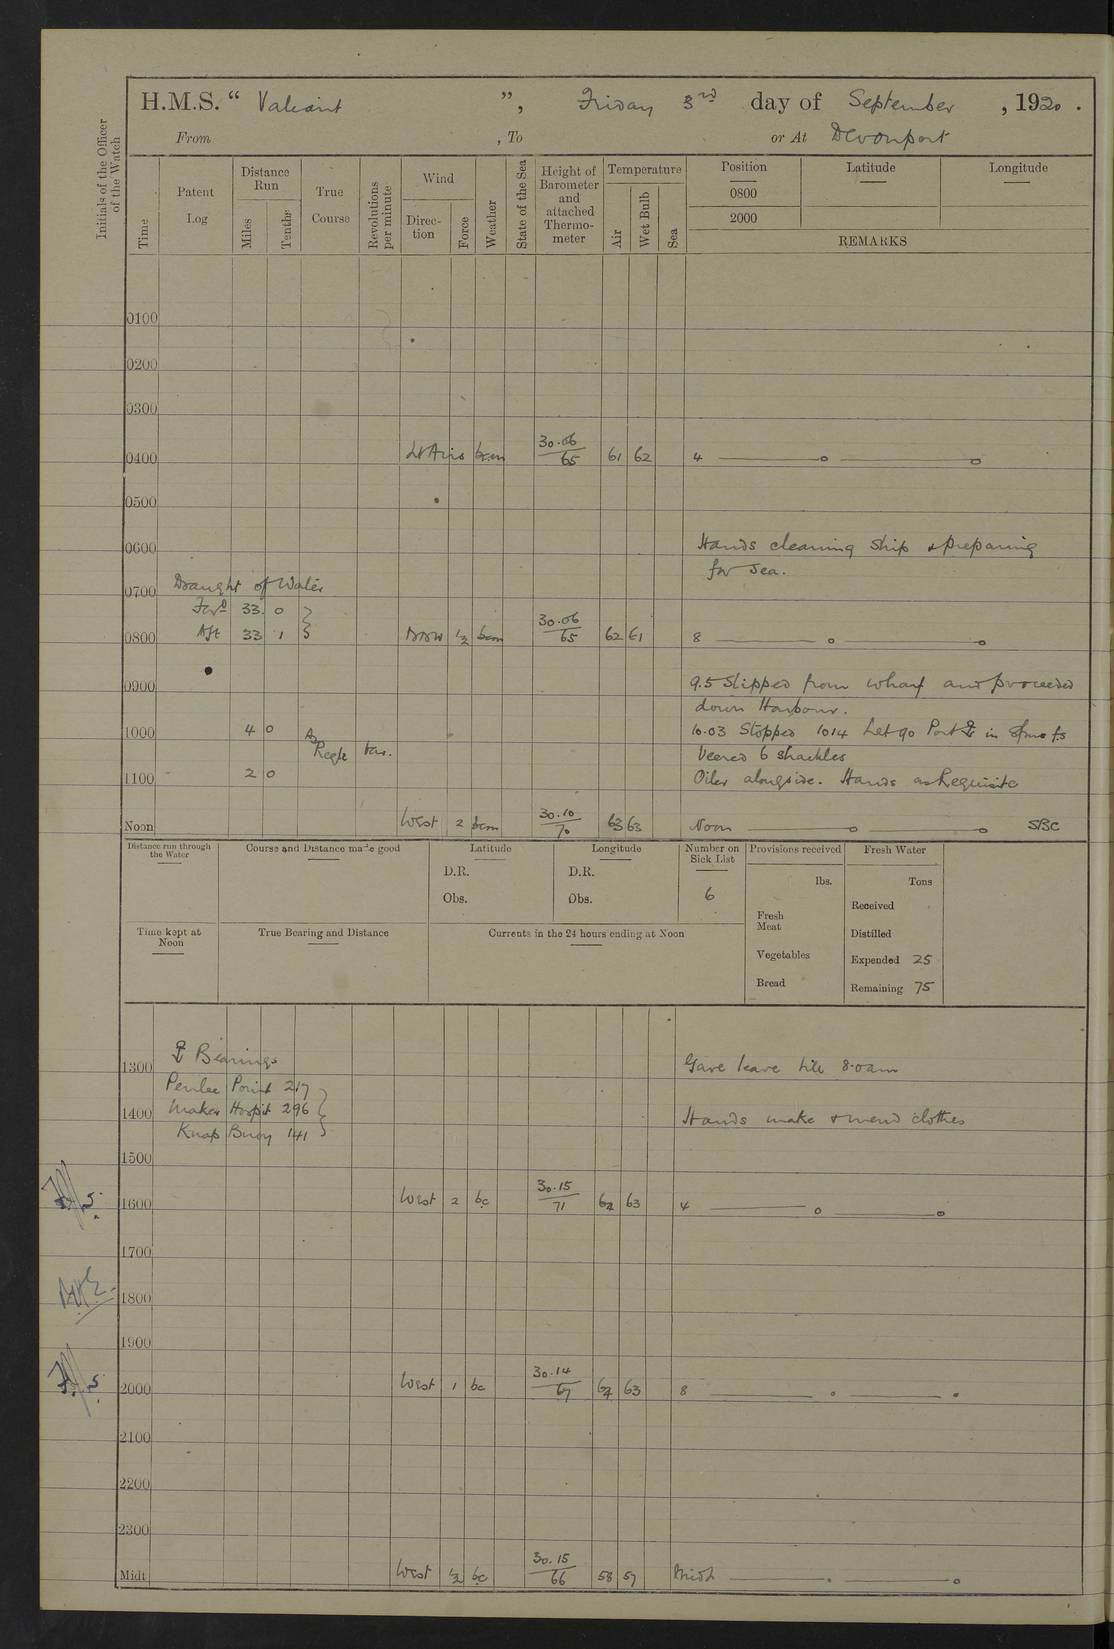 H.M.S. “ Valiant ”, Friday 3rd day of September , 1920 .
From , To or At Devonport
Initials of the Officer of the Watch
Time
Patent Log
Distance Run
Miles
Tenths
True Course
Revolutions per minute
Wind
Direc-tion
Force
Weather
State of the Sea
Height of Barometer and attached Thermo-meter
Temperature
Air
Wet Bulb
Sea
Position Latitude Longitude
0800
2000
REMARKS
0100
0200
0300
0400 Lt Airs bcm 30.06/65 61 62 4
0500
0600 Hands cleaning ship & preparing
for sea.
0700 Draught of Water
Ford 33 0
0800 Aft 33 1 1/2 bcm 30.06/65 62 61 8
0900 9.5 Slipped from wharf and proceeded
down Harbour.
1000 4 0 As Reqte Var. 10.03 Stopped 1014 Let go Port ⚓ in fms
Veered 6 shackles
1100 2 0 Oiler alongside. Hands as Requisite
Noon West 2 bcm 30.10/70 63 63 Noon SBC
Distance run through the Water
Course and Distance made good
Latitude
D.R.
Obs.
Longitude
D.R.
Obs.
Number on Sick List
6
Provisions received
lbs.
Fresh Meat
Vegetables
Bread
Fresh Water
Tons
Received
Distilled
Expended 25
Remaining 75
Time kept at Noon
True Bearing and Distance
Currents in the 24 hours ending at Noon
⚓ Bearings
1300 Gave leave till 8.0 am
Penlee Point 217
1400 Maker Hospit 296 Hands make & mend clothes
Knap Buoy 141
1500
1600 West 2 bc 30.15/71 62 63 4
1700
1800
1900
2000 West 1 bc 30.14/67 64 63 8
2100
2200
2300
Midt. West 1/2 bc 30.15/66 58 57 Midt